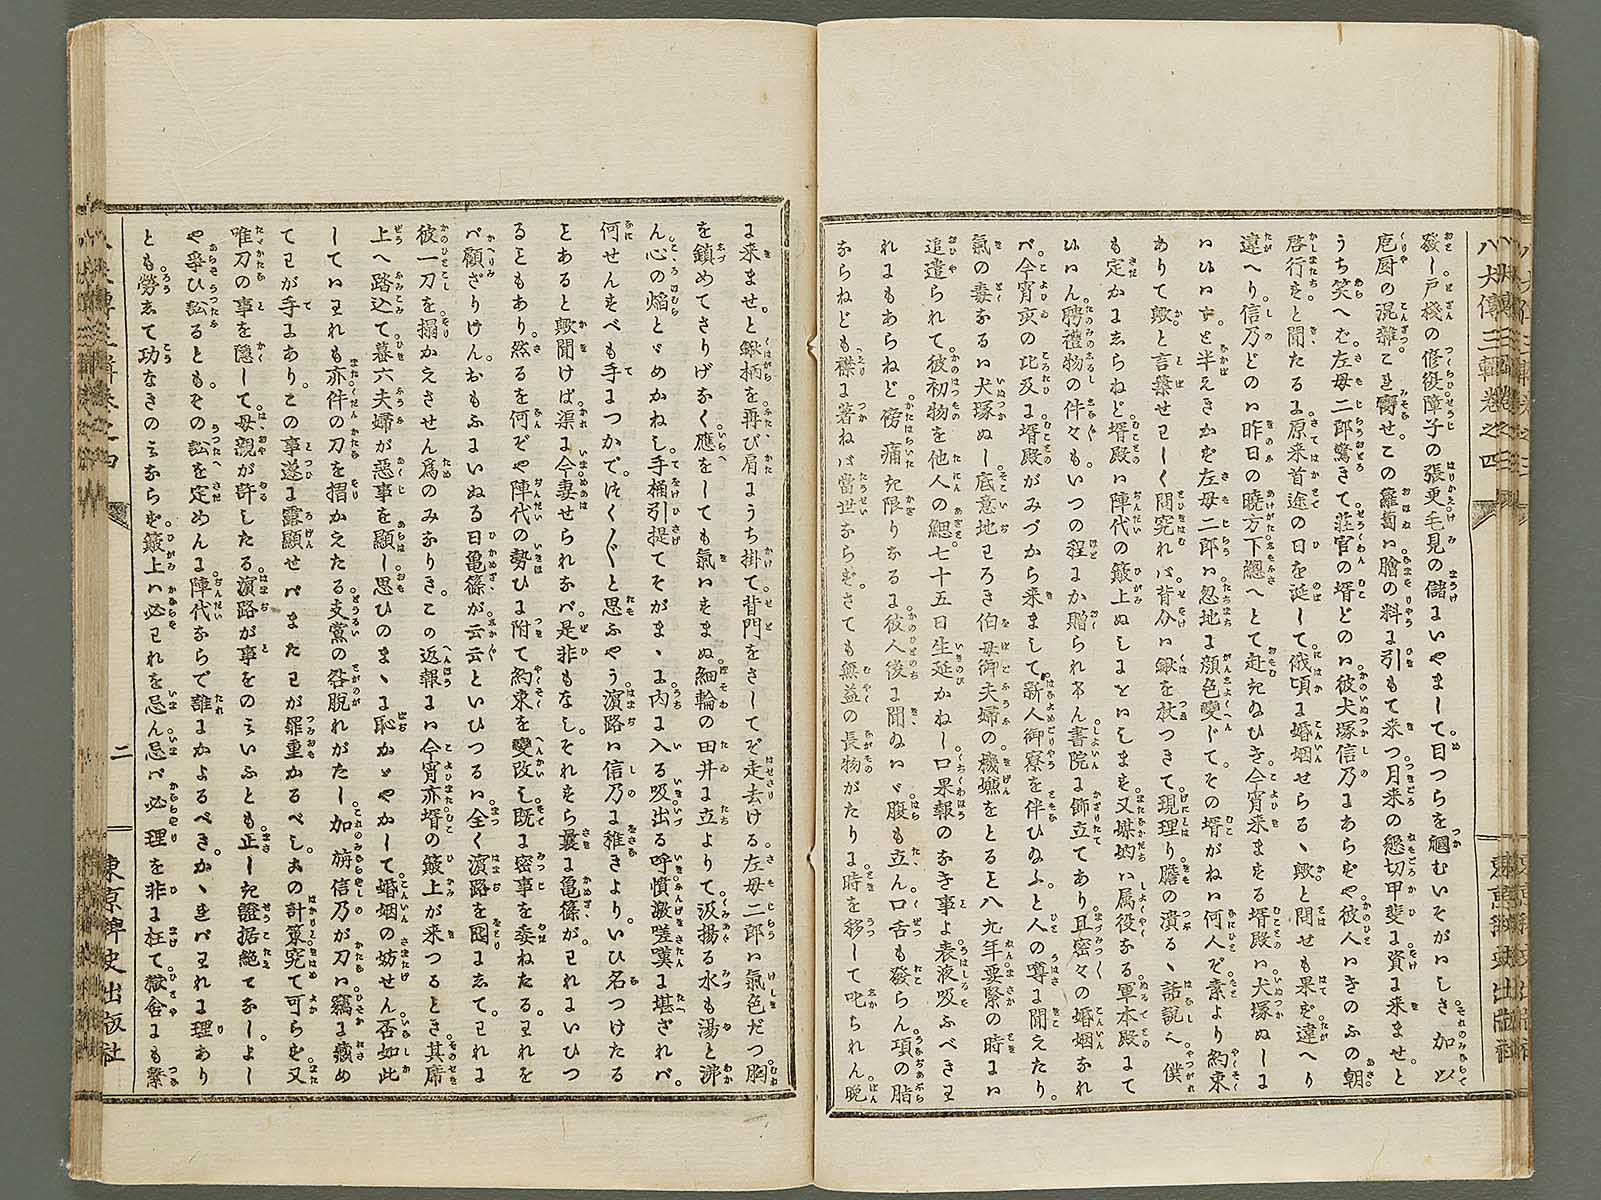 八犬傳三輯卷之四
發し戸棧の修復障子の張更毛見の儲にいやまして目つらを糆むいそがはしさ加以
庖厨の混雜こき寄せこの蘿蔔は膾の料に引もて来つ月来の懇切甲斐に資に来ませと
うち笑へを左母二郎驚きて莊官の壻どのは彼犬塚信乃にあらをや彼人はきのふの朝
啓行きと聞たるに原来首途の日を延して俄頃に婚姻せらるゝ歟と問せも果を違へり
違へり信乃どのは昨日の曉方下總へとて赴きぬひき今宵来まをる壻殿は犬塚ぬしに
はひはずと半えきかを左母二郎は忽地に顔色變じてその壻がねは何人ぞ素より約束
ありて歟と言葉せわしく問究れば背介は鍬を杖つきて現理り膽の潰るゝ話説へ僕
も定かにあらねど壻殿は陣代の簸上ぬしにとはしまを又媒妁は属役なる軍木殿にて
はいん聘禮物の件々もいつの程にか贈られけん書院に飾立てあり且密々の婚姻なれ
ば今宵亥の比及に壻殿がみづから来まして新人御寮を伴ひぬふと人の噂に聞えたり
氣の毒なるは犬塚ぬし底意地わろき伯母御夫婦の機嫌をとると八九年要緊の時には
追遣られて彼初物を他人の鰓七十五日生延かねし口果報のなき事よ表液吸ふべきわ
れにもあらねど傍痛き限りなるに彼人後に聞ぬはゞ腹も立ん口舌も發らん項の脂
ならねども襟に著ねば當世ならをさても無益の長物がたりに時を移して叱られん晩
に来ませと鍬柄を再び肩にうち掛て背門をさしてぞ走去ける左母二郎は氣色だつ胸
を鎮めてさりげなく應をしても氣はをまぬ細輪の田井に立よりて汲揚る水も湯と沸
ん心の焔とゞめかねし手桶引提てそがまゝに内に入る吸出る呼憤激嗟嘆に堪ざれば
何せんをべも手につかでつくづくと思ふやう濱路は信乃に稚きよりいひ名つけたる
とあると歟聞けば渠に今妻せられなば是非もなしそれをら曩に亀篠がわれにいひつ
るともあり然るを何ぞや陣代の勢ひに附て約束を變改し既に密事を委ねたるわれを
ば顧ざりけんおもふにいぬる日亀篠が云云といひつるは全く濱路を囮にしてわれに
彼一刀を搨かえさせん爲のみなりきこの返報には今宵亦壻の簸上が来つるとき其席
上へ踏込て暮六夫婦が惡事を顯し思ひのまゝに恥かゞやかして婚姻の妨せん否如此
してはわれも亦件の刀を搨かえたる支黨の咎脱れがたし加旃信乃が刀は竊に藏め
てわが手にありこの事遂に露顯せばまたわが罪重かるべし夫の計策究て可らを又
唯刀の事を隱して母親が許したる濱路が事をのみいふとも正しき證据絶てなしよし
や爭ひ訟るともその訟を定めんは陣代ならで誰にかよるべきかゝればわれに理あり
とも勞して功なきのみならを簸上は必われを忌ん忌ば必理を非に枉て獄舎にも繋
二
東京稗史出版社